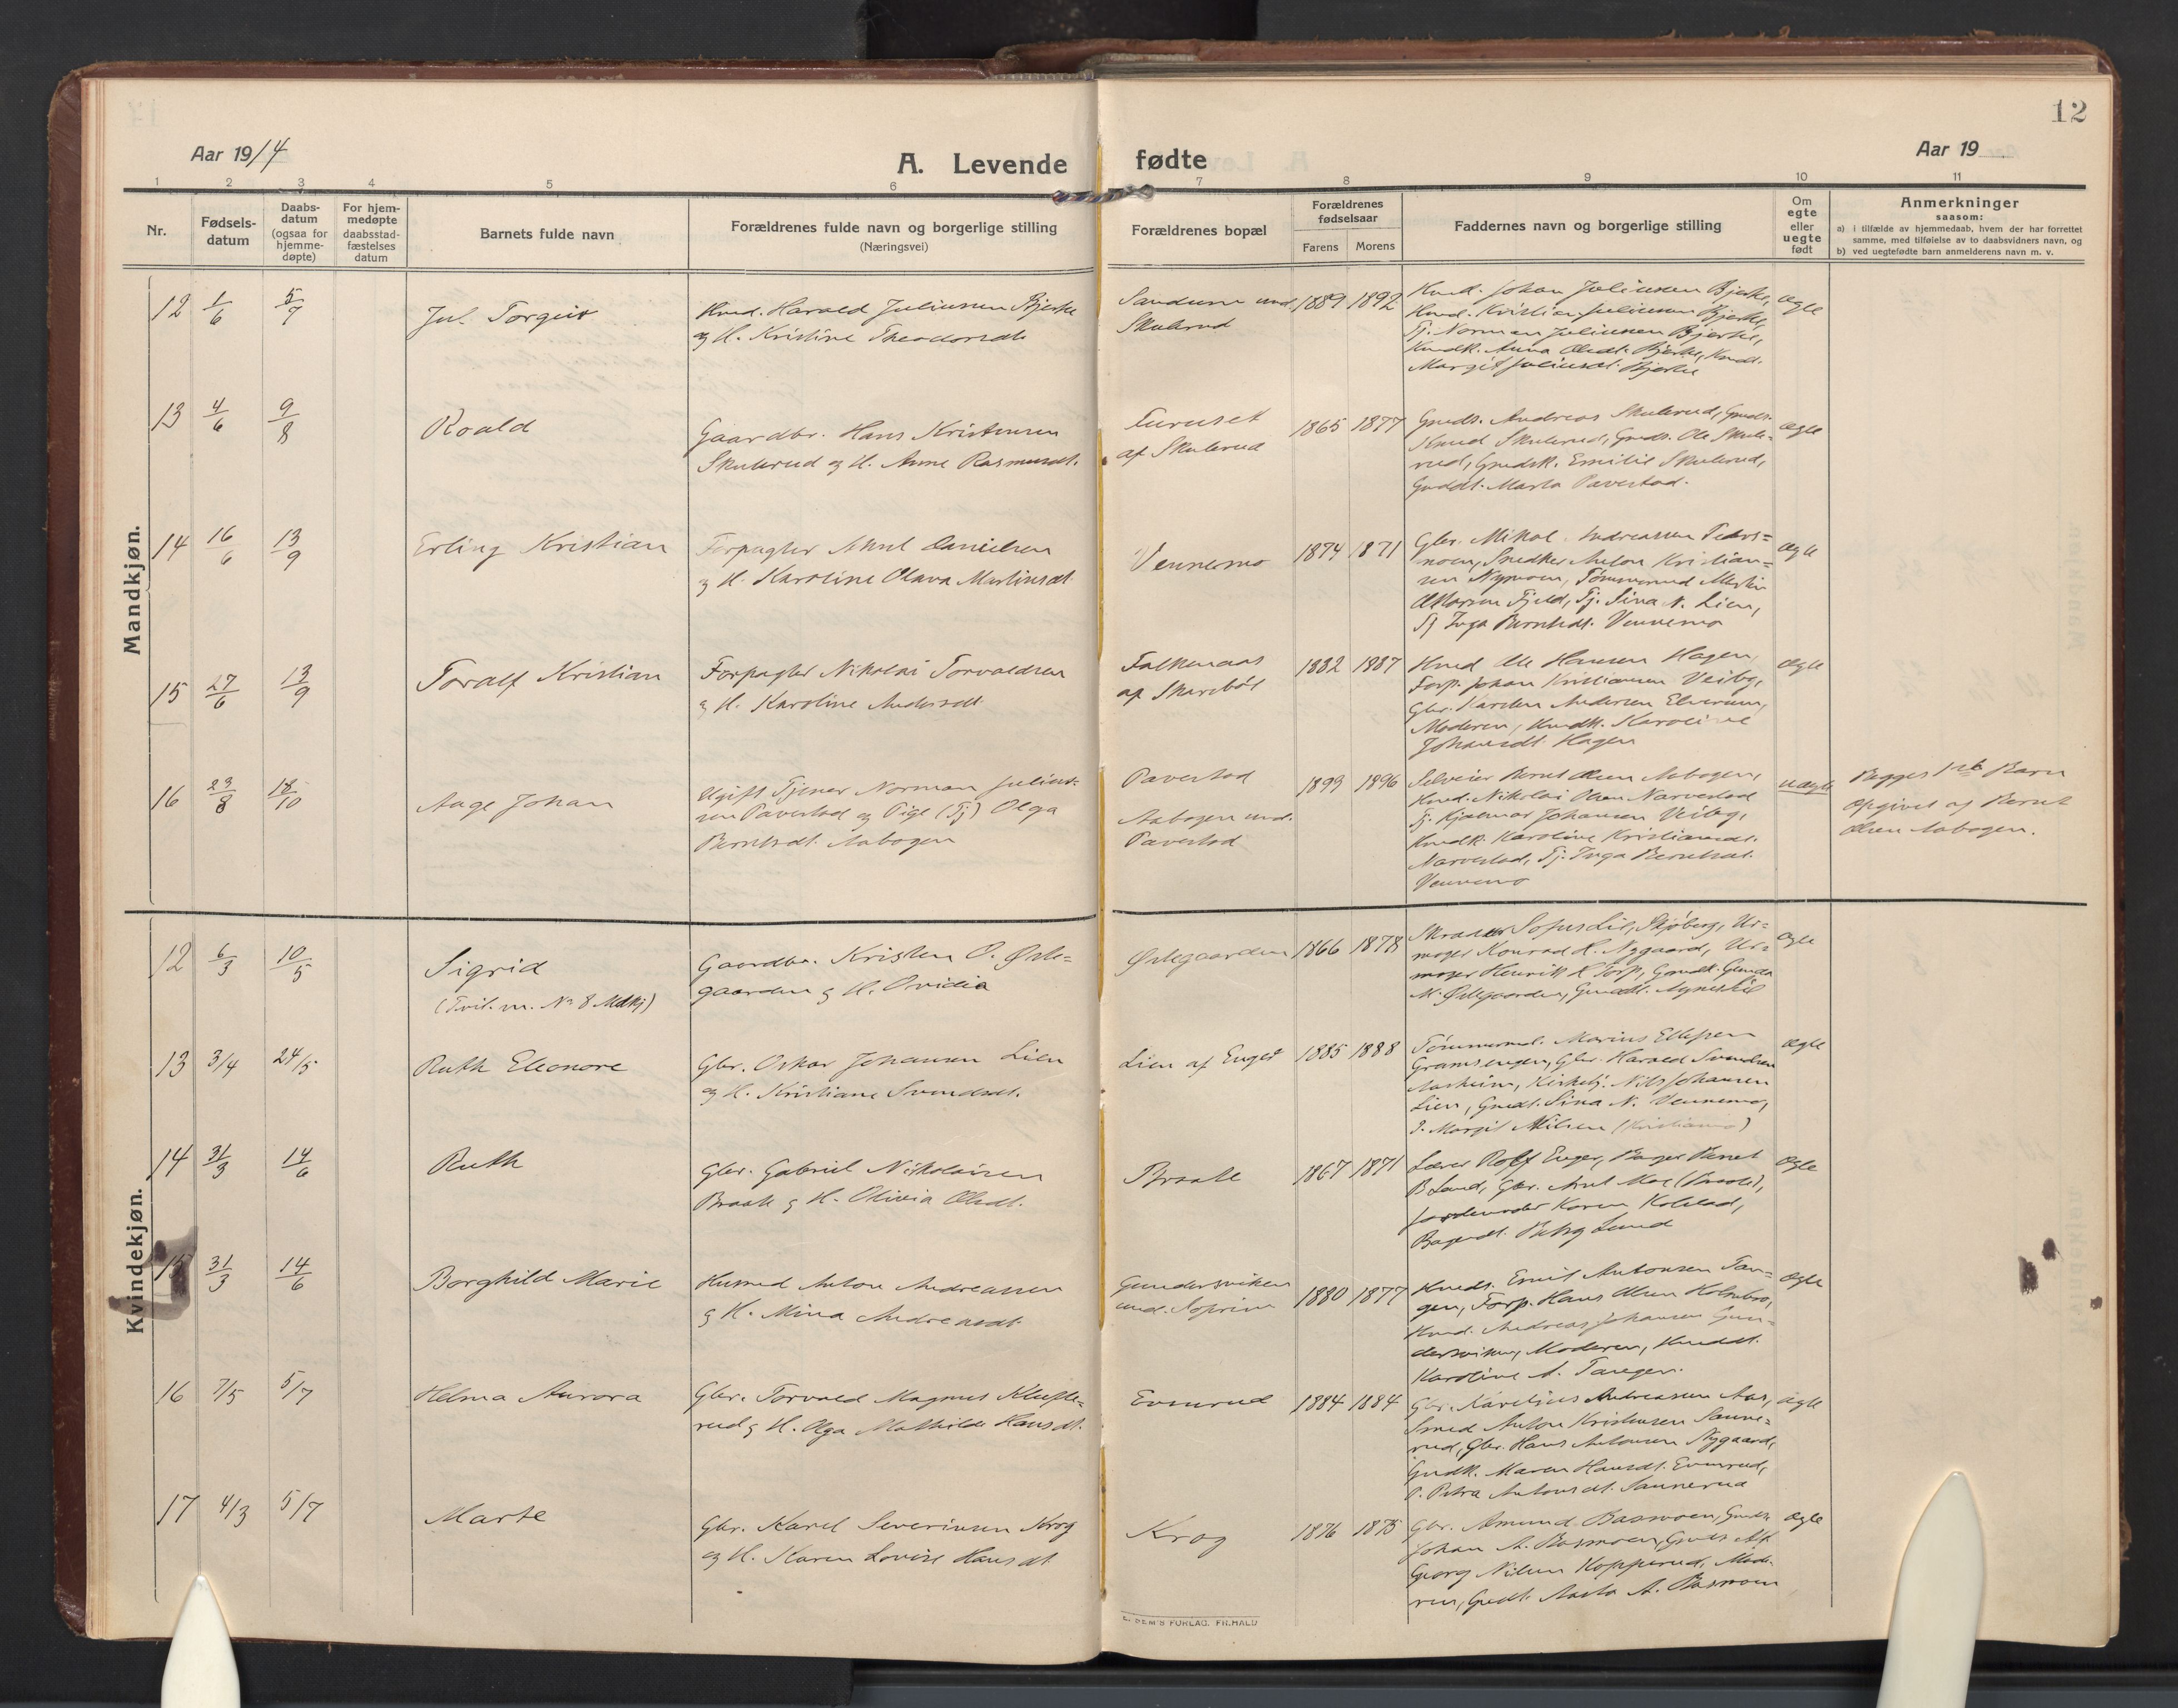 12
Aar 1914
A. Levende fødte
Aar 19
1 2 3 4 5 6 7 8 9 10 11
Nr.
Fødsels-
datum
Daabs-
datum
(ogsaa for
hjemme-
døpte)
For hjem-
medøpte
daabsstad-
fæstelses
datum
Barnets fulde navn
Forældrenes fulde navn og borgerlige stilling
(Næringsvei)
Forældrenes bopæl
Forældrenes
fødselsaar
Farens Morens
Faddernes navn og borgerlige stilling
Om
egte
eller
uegte
født
Anmerkninger
saasom:
a) i tilfælde av hjemmedaab, hvem der har forrettet
samme, med tilføielse av to daabsvidners navn, og
b) ved uegtefødte barn anmelderens navn m. v.
Mandkjøn.
12 1/6 5/7
Jul Torgeir
Hmd. Harald Juliussen Bjerke
og H. Kristine Theodorsdt.
Sandum und.
Skulerud
1889 1892
Hmd. Johan Juliussen Bjerke,
Hmd. Kristian Juliussen Bjerke,
Tj. Norman Juliussen Bjerke,
Hmdk. Anna Olsdt. Bjerke, Hmdt.
Margit Juliusdt. Bjerke
ægte
13 4/6 9/8
Roald
Gaardbr. Hans Kristensen
Skulerud og H. Anne Rasmusdt.
Furuset
af Skulerud
1865 1877
Gmds. Andreas Skulerud, Gmds.
Knud Skulerud, Gmds. Ole Skule-
rud, Gmdsk. Emilie Skulerud,
Gmddt. Marta Pavestad.
ægte
14 16/6 13/9
Erling Kristian
Forpagter Danielsen
og H. Karoline Olava Martinsdt.
Vennemo
1874 1871
Gbr. Mikal Andreassen Peders-
moen, Snedker Anton Kristian-
sen Nymoen, Tømmermd Martin
Fjeld, Tj. Sina N. Lien,
Tj Inga Berntsdt. Vennemo
ægte
15 27/6 13/9
Toralf Kristian
Forpagter Nikolai Torvaldsen
og H. Karoline Andersdt.
Falkenaas
af Skarebøl
1882 1887
Hmd Ole Hansen Hagen,
Forp. Johan Kristiansen Veiby,
Gbr. Karsten Andersen Elverum,
Moderen, Hmdk. Karoline
Johansdt. Hagen
ægte
16 23/8 18/10
Aage Johan
Ugift Tjener Norman Julius-
sen Pavestad og Pige (Tj) Olga
Berntsdt. Aabogen
Pavestad
Aabogen und.
Pavestad
1893 1896
Selveier Bernt Olsen Aabogen,
Hmd. Nikolai Olsen Narvestad
Tj. Hjalmar Johansen Veiby,
Hmdk. Karoline Kristiansdt.
Narvestad, Tj. Inga Berntsdt.
Vennemo
uægte
Begges 1ste Barn
Opgivet af Bernt
Olsen Aabogen.
Kvindekjøn.
12 6/3 10/5
Sigrid
(Tvil. m. No 8 Mdkj)
Gaardbr. Kristen O. Øste-
gaarden og H. Ovidia
Østegaarden
1866 1878
Skrædder Sofus Lie, Skjøberg, Ur-
mager Konrad K. Nygaard, Ur-
mager Henrik K Torp, Gmdk. Gunda
M. Østegaarden, Gmddt. Agnes Lie
ægte
13 3/4 24/5
Ruth Eleonore
Gbr. Oskar Johansen Lien
og H. Kristiane Svendsdt.
Lien af Enget
1885 1888
Tømmermd. Marius Ellefsen
Gramsengen, Gbr. Harald Svendsen
Aasheim, Kirketj. Nils Johansen
Lien, Gmdt. Sina N. Vennemo,
P. Margit Nilsen (Kristiania)
ægte
14 31/3 14/6
Ruth
Gbr. Gabriel Nikolaisen
Braate og H. Olivia Olsdt.
Braate
1867 1871
Lærer Rolf Enger, Bager Bernt
B Lund, Gbr. Arnt Moe (Braate),
Jordemoder Karen Kolstad,
Bagerdt. Betsy Lund
ægte
15 31/3 14/6
Borghild Marie
Husmd Anton Andreassen
og H. Mina Andreasdt.
Gundersviken
und. Soprim
1880 1877
Hmds. Emil Antonsen Tan-
gen, Forp. Hans Olsen Holmbro,
Hmd. Andreas Johansen Gun-
dersviken, Moderen, Hmddt.
Karoline A. Tangen.
ægte
16 7/5 5/7
Helma Aurora
Gbr. Torvald Magnus Klufte-
rud og H. Olga Mathilde Hansdt.
Evenrud
1884 1884
Gbr. Karelius Andreassen Aas,
Smed Anton Kristensen Sanne-
rud, Gbr. Hans Antonsen Nygaard,
Gmdk. Maren Hansdt. Evenrud,
P. Petra Antonsdt. Sannerud
ægte
17 4/3 5/7
Marte
Gbr. Karel Severinsen Krog
og H. Karen Lovise Hansdt
Krog
1876 1875
Gbr. Amund Basmoen, Gmds.
Johan A. Basmoen, Gmds Alf
Georg Nilsen Kopperud, Mode-
ren, Gmdt. Aasta A. Basmoen
ægte
FORLAG. FR.HALD